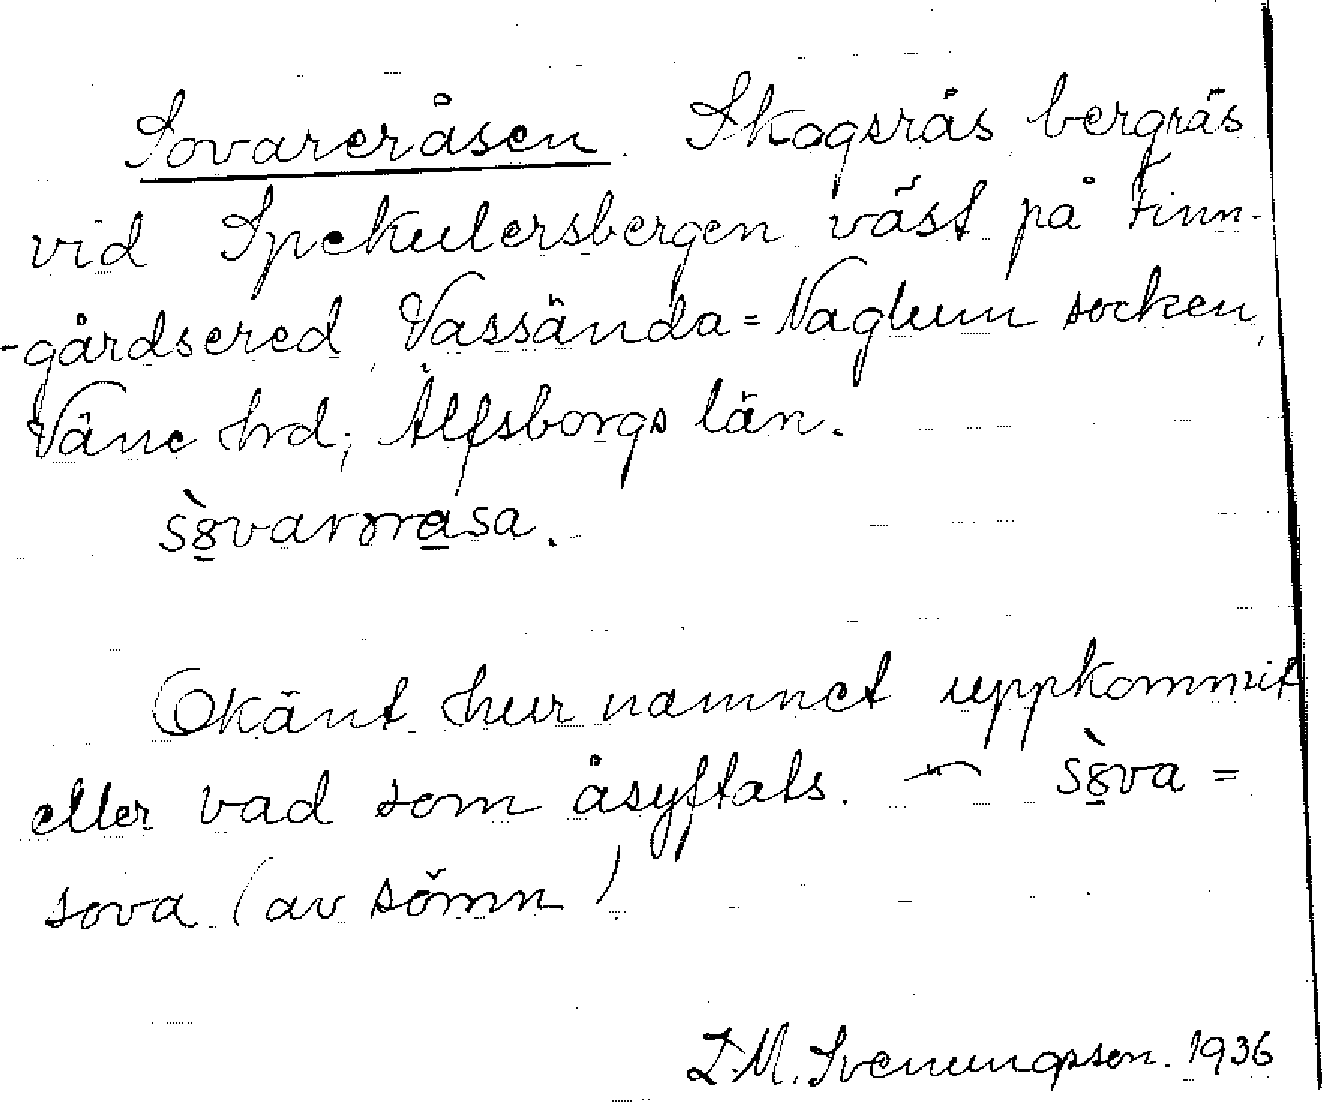 Sovareråsen. Skogsrås bergrås
vid Spekulersbergen väst på Finn-
-gårdsered, Vassända=Naglum socken,
Väne hrd, Älfsborgs län.
Okänt hur namnet uppkommit
eller vad som åsyftats. — sòva =
sova (av sömn)
L.M. Svenungsson. 1936